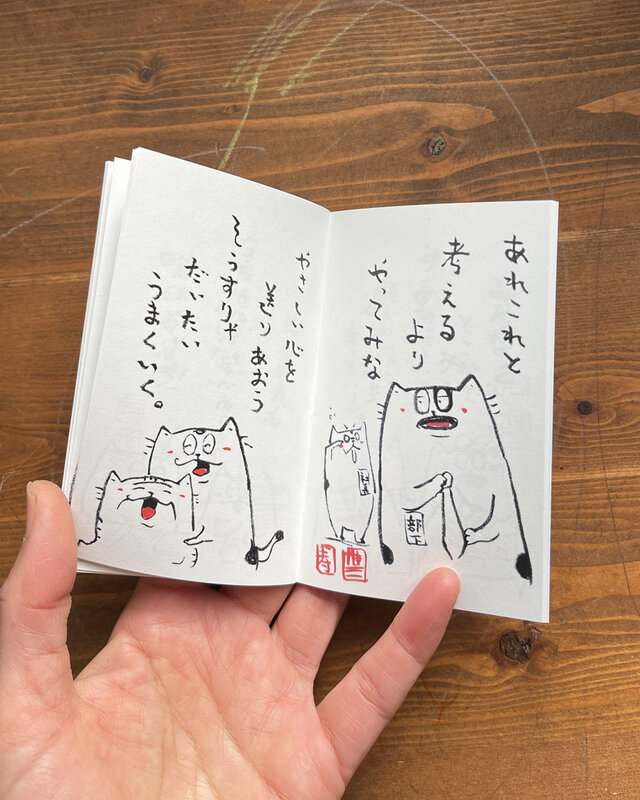 あれこれと
考える
より
やってみな
部下
やさしい心を
送りあおう
そうすりゃ
だいたい
うまくいく。